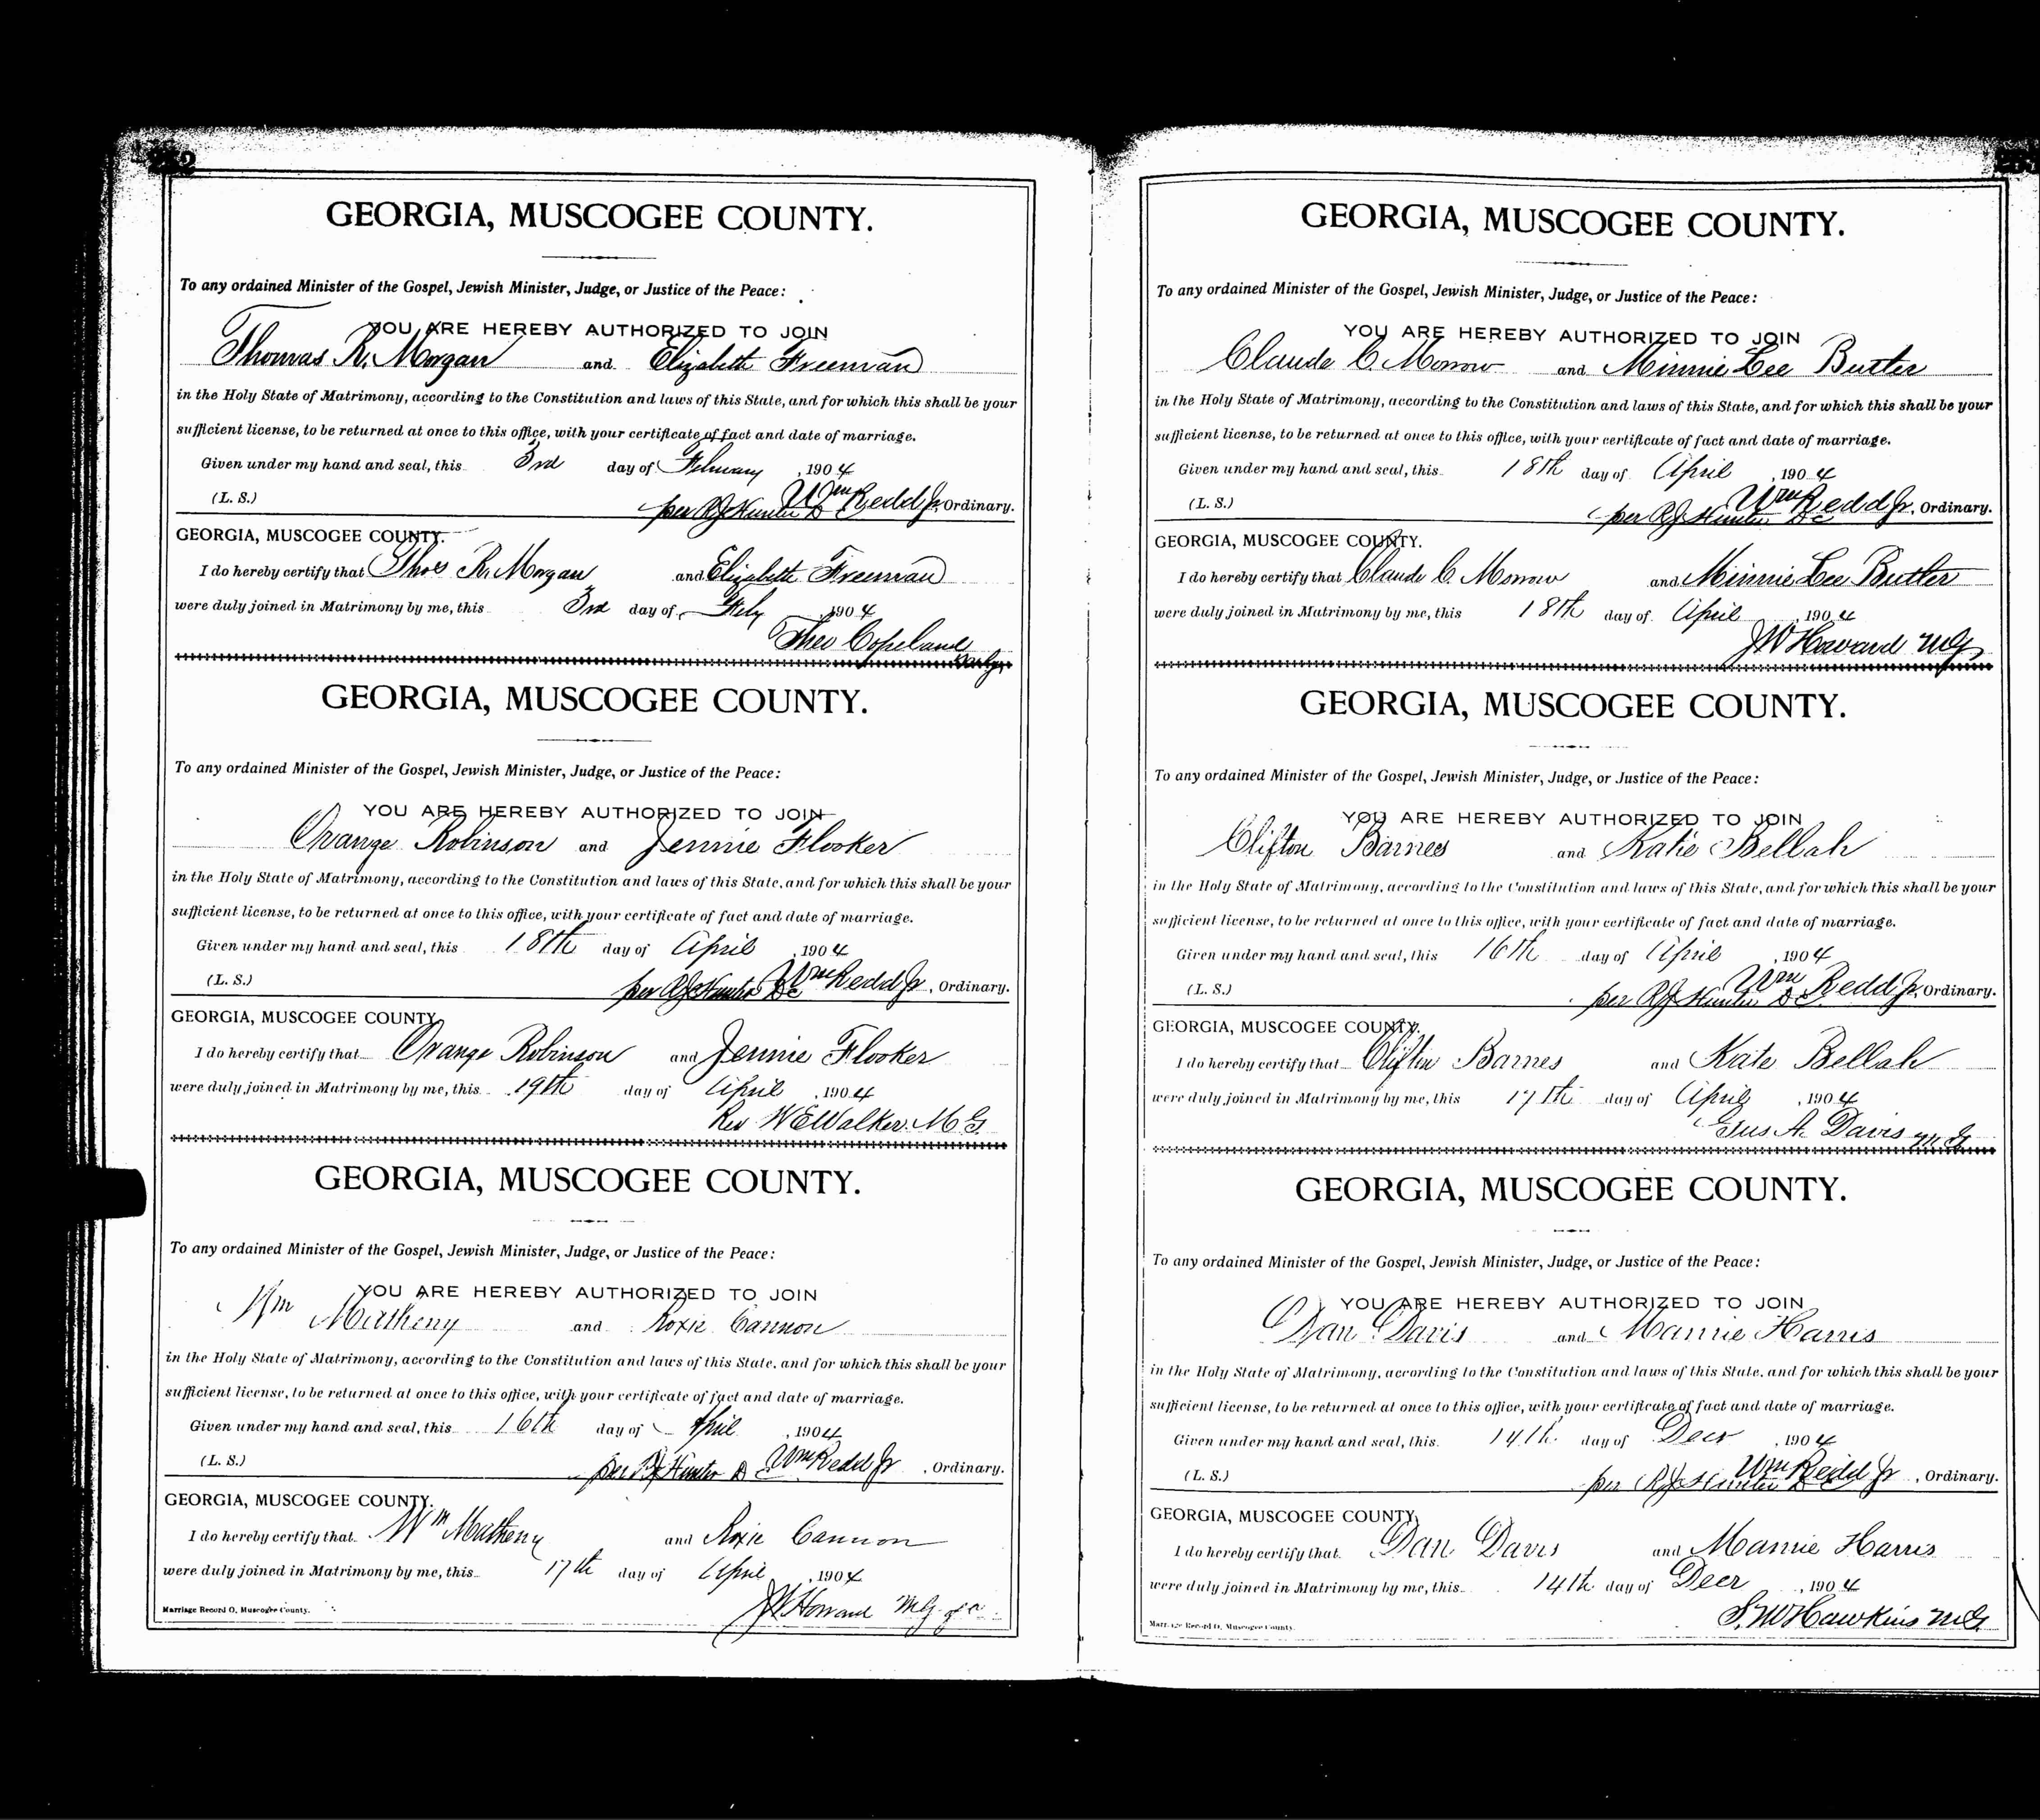 GEORGIA, MUSCOGEE COUNTY.
To any ordained Minister of the Gospel, Jewish Minister, Judge, or Justice of the Peace:
YOU ARE HEREBY AUTHORIZED TO JOIN
Thomas R. Morgan and Elizabeth Freeman
in the Holy State of Matrimony, according to the Constitution and laws of this State, and for which this shall be your
sufficient license, to be returned at once to this office, with your certificate of fact and date of marriage.
Given under my hand and seal, this 3rd day of February, 1904
(L. S.) per RJ Hunter D C Wm Redd Jr, Ordinary.
GEORGIA, MUSCOGEE COUNTY.
I do hereby certify that Thos R. Morgan and Elizabeth Freeman
were duly joined in Matrimony by me, this 3rd day of Feby, 1904
Theo Copeland
GEORGIA, MUSCOGEE COUNTY.
To any ordained Minister of the Gospel, Jewish Minister, Judge, or Justice of the Peace:
YOU ARE HEREBY AUTHORIZED TO JOIN
Orange Robinson and Jennie Flooker
in the Holy State of Matrimony, according to the Constitution and laws of this State, and for which this shall be your
sufficient license, to be returned at once to this office, with your certificate of fact and date of marriage.
Given under my hand and seal, this 18th day of April, 1904
(L. S.) per RJ Hunter DC Wm Redd Jr, Ordinary.
GEORGIA, MUSCOGEE COUNTY
I do hereby certify that Orange Robinson and Jennie Flooker
were duly joined in Matrimony by me, this 19th day of April, 1904
Rev W E Walker. M. G.
GEORGIA, MUSCOGEE COUNTY.
To any ordained Minister of the Gospel, Jewish Minister, Judge, or Justice of the Peace:
YOU ARE HEREBY AUTHORIZED TO JOIN
Wm Matheny and Roxie Cannon
in the Holy State of Matrimony, according to the Constitution and laws of this State, and for which this shall be your
sufficient license, to be returned at once to this office, with your certificate of fact and date of marriage.
Given under my hand and seal, this 16th day of April, 1904
(L. S.) per RJ Hunter D C Wm Redd Jr, Ordinary.
GEORGIA, MUSCOGEE COUNTY.
I do hereby certify that Wm Matheny and Roxie Cannon
were duly joined in Matrimony by me, this 17th day of April, 1904
JW Howard M.G.
Marriage Record O, Muscogee County.
GEORGIA, MUSCOGEE COUNTY.
To any ordained Minister of the Gospel, Jewish Minister, Judge, or Justice of the Peace:
YOU ARE HEREBY AUTHORIZED TO JOIN
Claude C. Morrow and Minnie Lee Butler
in the Holy State of Matrimony, according to the Constitution and laws of this State, and for which this shall be your
sufficient license, to be returned at once to this office, with your certificate of fact and date of marriage.
Given under my hand and seal, this 18th day of April, 1904
(L. S.) per RJ Hunter DC Wm Redd Jr, Ordinary.
GEORGIA, MUSCOGEE COUNTY.
I do hereby certify that Claude C. Morrow and Minnie Lee Butler
were duly joined in Matrimony by me, this 18th day of April, 1904
JW Howard MG
GEORGIA, MUSCOGEE COUNTY.
To any ordained Minister of the Gospel, Jewish Minister, Judge, or Justice of the Peace:
YOU ARE HEREBY AUTHORIZED TO JOIN
Clifton Barnes and Katie Bellah
in the Holy State of Matrimony, according to the Constitution and laws of this State, and for which this shall be your
sufficient license, to be returned at once to this office, with your certificate of fact and date of marriage.
Given under my hand and seal, this 16th day of April, 1904
(L. S.) per RJ Hunter D C Wm Redd Jr, Ordinary.
GEORGIA, MUSCOGEE COUNTY.
I do hereby certify that Clifton Barnes and Kate Bellah
were duly joined in Matrimony by me, this 17th day of April, 1904
Gus A. Davis M.G.
GEORGIA, MUSCOGEE COUNTY.
To any ordained Minister of the Gospel, Jewish Minister, Judge, or Justice of the Peace:
YOU ARE HEREBY AUTHORIZED TO JOIN
Dan Davis and Mamie Harris
in the Holy State of Matrimony, according to the Constitution and laws of this State, and for which this shall be your
sufficient license, to be returned at once to this office, with your certificate of fact and date of marriage.
Given under my hand and seal, this 14th day of Decr, 1904
(L. S.) per RJ Hunter DC Wm Redd Jr, Ordinary.
GEORGIA, MUSCOGEE COUNTY,
I do hereby certify that Dan Davis and Mamie Harris
were duly joined in Matrimony by me, this 14th day of Decr, 1904
S. W Hawkins M.G.
Marriage Record O, Muscogee County.